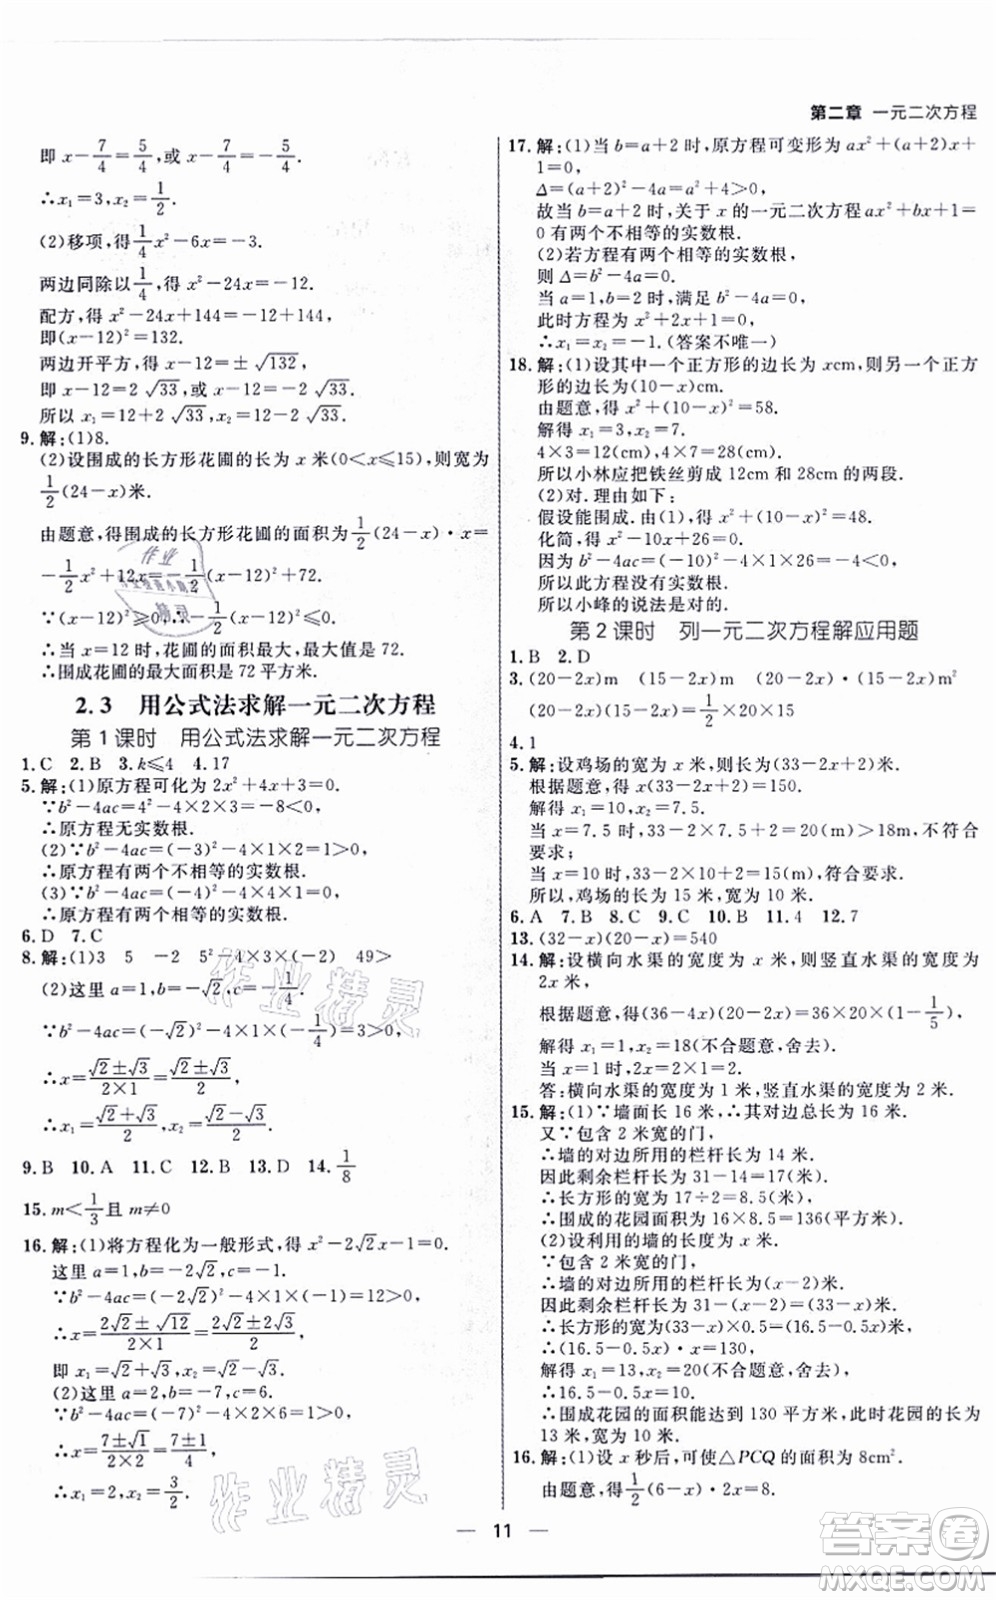 第二章 一元二次方程
即 x－7/4＝5/4,或 x－7/4＝－5/4.
∴x₁＝3,x₂＝1/2.
(2)移项,得 1/4x²－6x＝－3.
两边同除以1/4,得 x²－24x＝－12.
配方,得 x²－24x＋144＝－12＋144,
即(x－12)²＝132.
两边开平方,得 x－12＝±√132,
即 x－12＝2√33,或 x－12＝－2√33.
所以 x₁＝12＋2√33,x₂＝12－2√33.
9. 解:(1)8.
(2)设围成的长方形花圃的长为 x 米(0＜x≤15),则宽为
1/2(24－x)米.
由题意,得围成的长方形花圃的面积为1/2(24－x)·x＝
－1/2x²＋12x＝－1/2(x－12)²＋72.
∵(x－12)²≥0,∴－1/2(x－12)²≤0.
∴当 x＝12 时,花圃的面积最大,最大值为 72.
∴围成花圃的最大面积是 72 平方米.
2.3 用公式法求解一元二次方程
第 1 课时 用公式法求解一元二次方程
1. C 2. B 3. k≤4 4. 17
5. 解:(1)原方程可化为 2x²＋4x＋3＝0.
∵b²－4ac＝4²－4×2×3＝－8＜0,
∴原方程无实数根.
(2)∵b²－4ac＝(－3)²－4×1×2＝1＞0,
∴原方程有两个不相等的实数根.
(3)∵b²－4ac＝(－6)²－4×1×9＝0,
∴原方程有两个相等的实数根.
6. D 7. C
8. 解:(1)3 5 －2 5²－4×3×(－2) 49＞
(2)这里 a＝1,b＝－√2,c＝－1/4.
∵b²－4ac＝(－√2)²－4×1×(－1/4)＝3＞0,
∴x＝(√2±√3)/(2×1)＝(√2±√3)/2,
∴x₁＝(√2＋√3)/2,x₂＝(√2－√3)/2.
9. B 10. A 11. C 12. B 13. D 14. 1/8
15. m＜1/3且 m≠0
16. 解:(1)将方程化为一般形式,得 x²－2√2x－1＝0.
这里 a＝1,b＝－2√2,c＝－1.
∵b²－4ac＝(－2√2)²－4×1×(－1)＝12＞0,
∴x＝(2√2±√12)/(2×1)＝(2√2±2√3)/2,
即 x₁＝√2＋√3,x₂＝√2－√3.
(2)这里 a＝2,b＝－7,c＝6.
∵b²－4ac＝(－7)²－4×2×6＝1＞0,
∴x＝(7±√1)/(2×2)＝(7±1)/4,
∴x₁＝2,x₂＝3/2.
17. 解:(1)当 b＝a＋2 时,原方程可变形为 ax²＋(a＋2)x＋
1＝0.
Δ＝(a＋2)²－4a＝a²＋4＞0,
故当 b＝a＋2 时,关于 x 的一元二次方程 ax²＋bx＋1＝
0 有两个不相等的实数根.
(2)若方程有两个相等的实数根,
则 Δ＝b²－4a＝0.
当 a＝1,b＝2 时,满足 b²－4a＝0,
此时方程为 x²＋2x＋1＝0,
∴x₁＝x₂＝－1.(答案不唯一)
18. 解:(1)设其中一个正方形的边长为 xcm,则另一个正方
形的边长为(10－x)cm.
由题意,得 x²＋(10－x)²＝58.
解得 x₁＝3,x₂＝7.
4×3＝12(cm),4×7＝28(cm).
所以小林应把铁丝剪成 12cm 和 28cm 的两段.
(2)对.理由如下:
假设能围成.由(1),得 x²＋(10－x)²＝48.
化简,得 x²－10x＋26＝0.
因为 b²－4ac＝(－10)²－4×1×26＝－4＜0,
所以此方程没有实数根.
所以小峰的说法是对的.
第 2 课时 列一元二次方程解应用题
1. B 2. D
3. (20－2x)m (15－2x)m (20－2x)(15－2x)m²
(20－2x)(15－2x)＝1/2×20×15
4. 1
5. 解:设鸡场的宽为 x 米,则长为(33－2x＋2)米.
根据题意,得 x(33－2x＋2)＝150.
解得 x₁＝10,x₂＝7.5.
当 x＝7.5 时,33－2×7.5＋2＝20(m)＞18,不符合
要求;
当 x＝10 时,33－2×10＋2＝15(m).
所以,鸡场的长为 15 米,宽为 10 米.
6. A 7. B 8. C 9. C 10. B 11. 4 12. 7
13. (32－x)(20－x)＝540
14. 解:设横向水渠的宽度为 x 米,则竖直水渠的宽度为
2x 米,
根据题意,得(36－4x)(20－2x)＝36×20×(1－1/5),
解得 x₁＝1,x₂＝18(不合题意,舍去).
当 x＝1 时,2x＝2×1＝2.
答:横向水渠的宽度为 1 米,竖直水渠的宽度为 2 米.
15. 解:(1)∵墙面长 16 米,∴其对边总长为 16 米.
又∵包含 2 米宽的门,
∴墙的对边所用的栏杆长为 14 米.
因此剩余栏杆长为 31－14＝17(米),
∴长方形的宽为 17÷2＝8.5(米),
∴围成的花园面积为 16×8.5＝136(平方米).
(2)设利用的墙的长度为 x 米,
∵包含 2 米宽的门,
∴墙的对边所用的栏杆长为(x－2)米,
因此剩余栏杆长为 31－(x－2)＝33－x(米),
∴长方形的宽为(33－x)×0.5＝16.5－0.5x(米).
∴围成的花园面积为 x(16.5－0.5x)＝130(平方米),
解得 x₁＝13,x₂＝20(不符合题意,舍去),
∴16.5－0.5x＝10.
∴围成花园的面积能达到 130 平方米,此时花园的长为
13 米,宽为 10 米.
16. 解:(1)设 x 秒后,可使△PCQ 的面积为 8cm².
由题意,得 1/2(6－x)·2x＝8,
11
作业精灵
作业精灵
答案圈
MXQE.COM